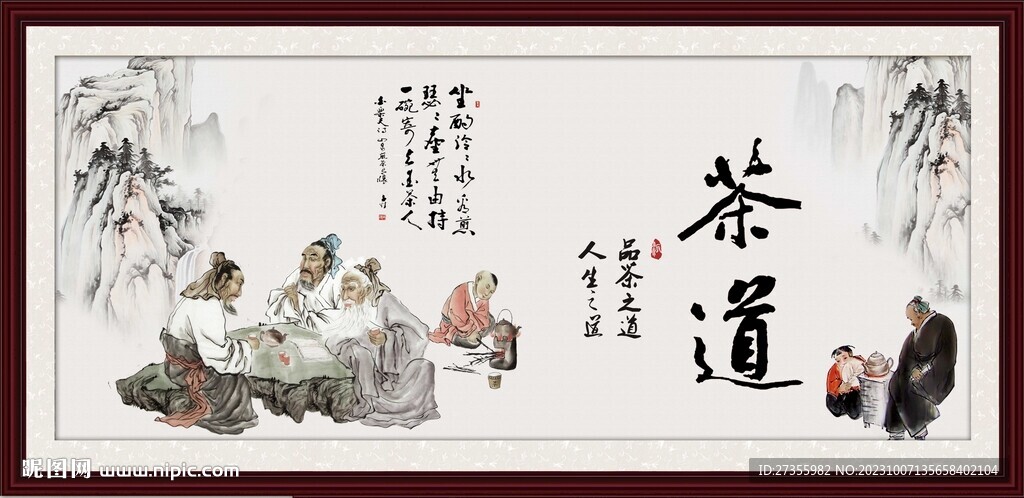 茶道
品茶之道
人生之道
坐酌泠〻水看煎
瑟〻塵無由持
一碗寄与爱茶人
昵图网 www.nipic.com
ID:27355982 NO:20231007135658402104